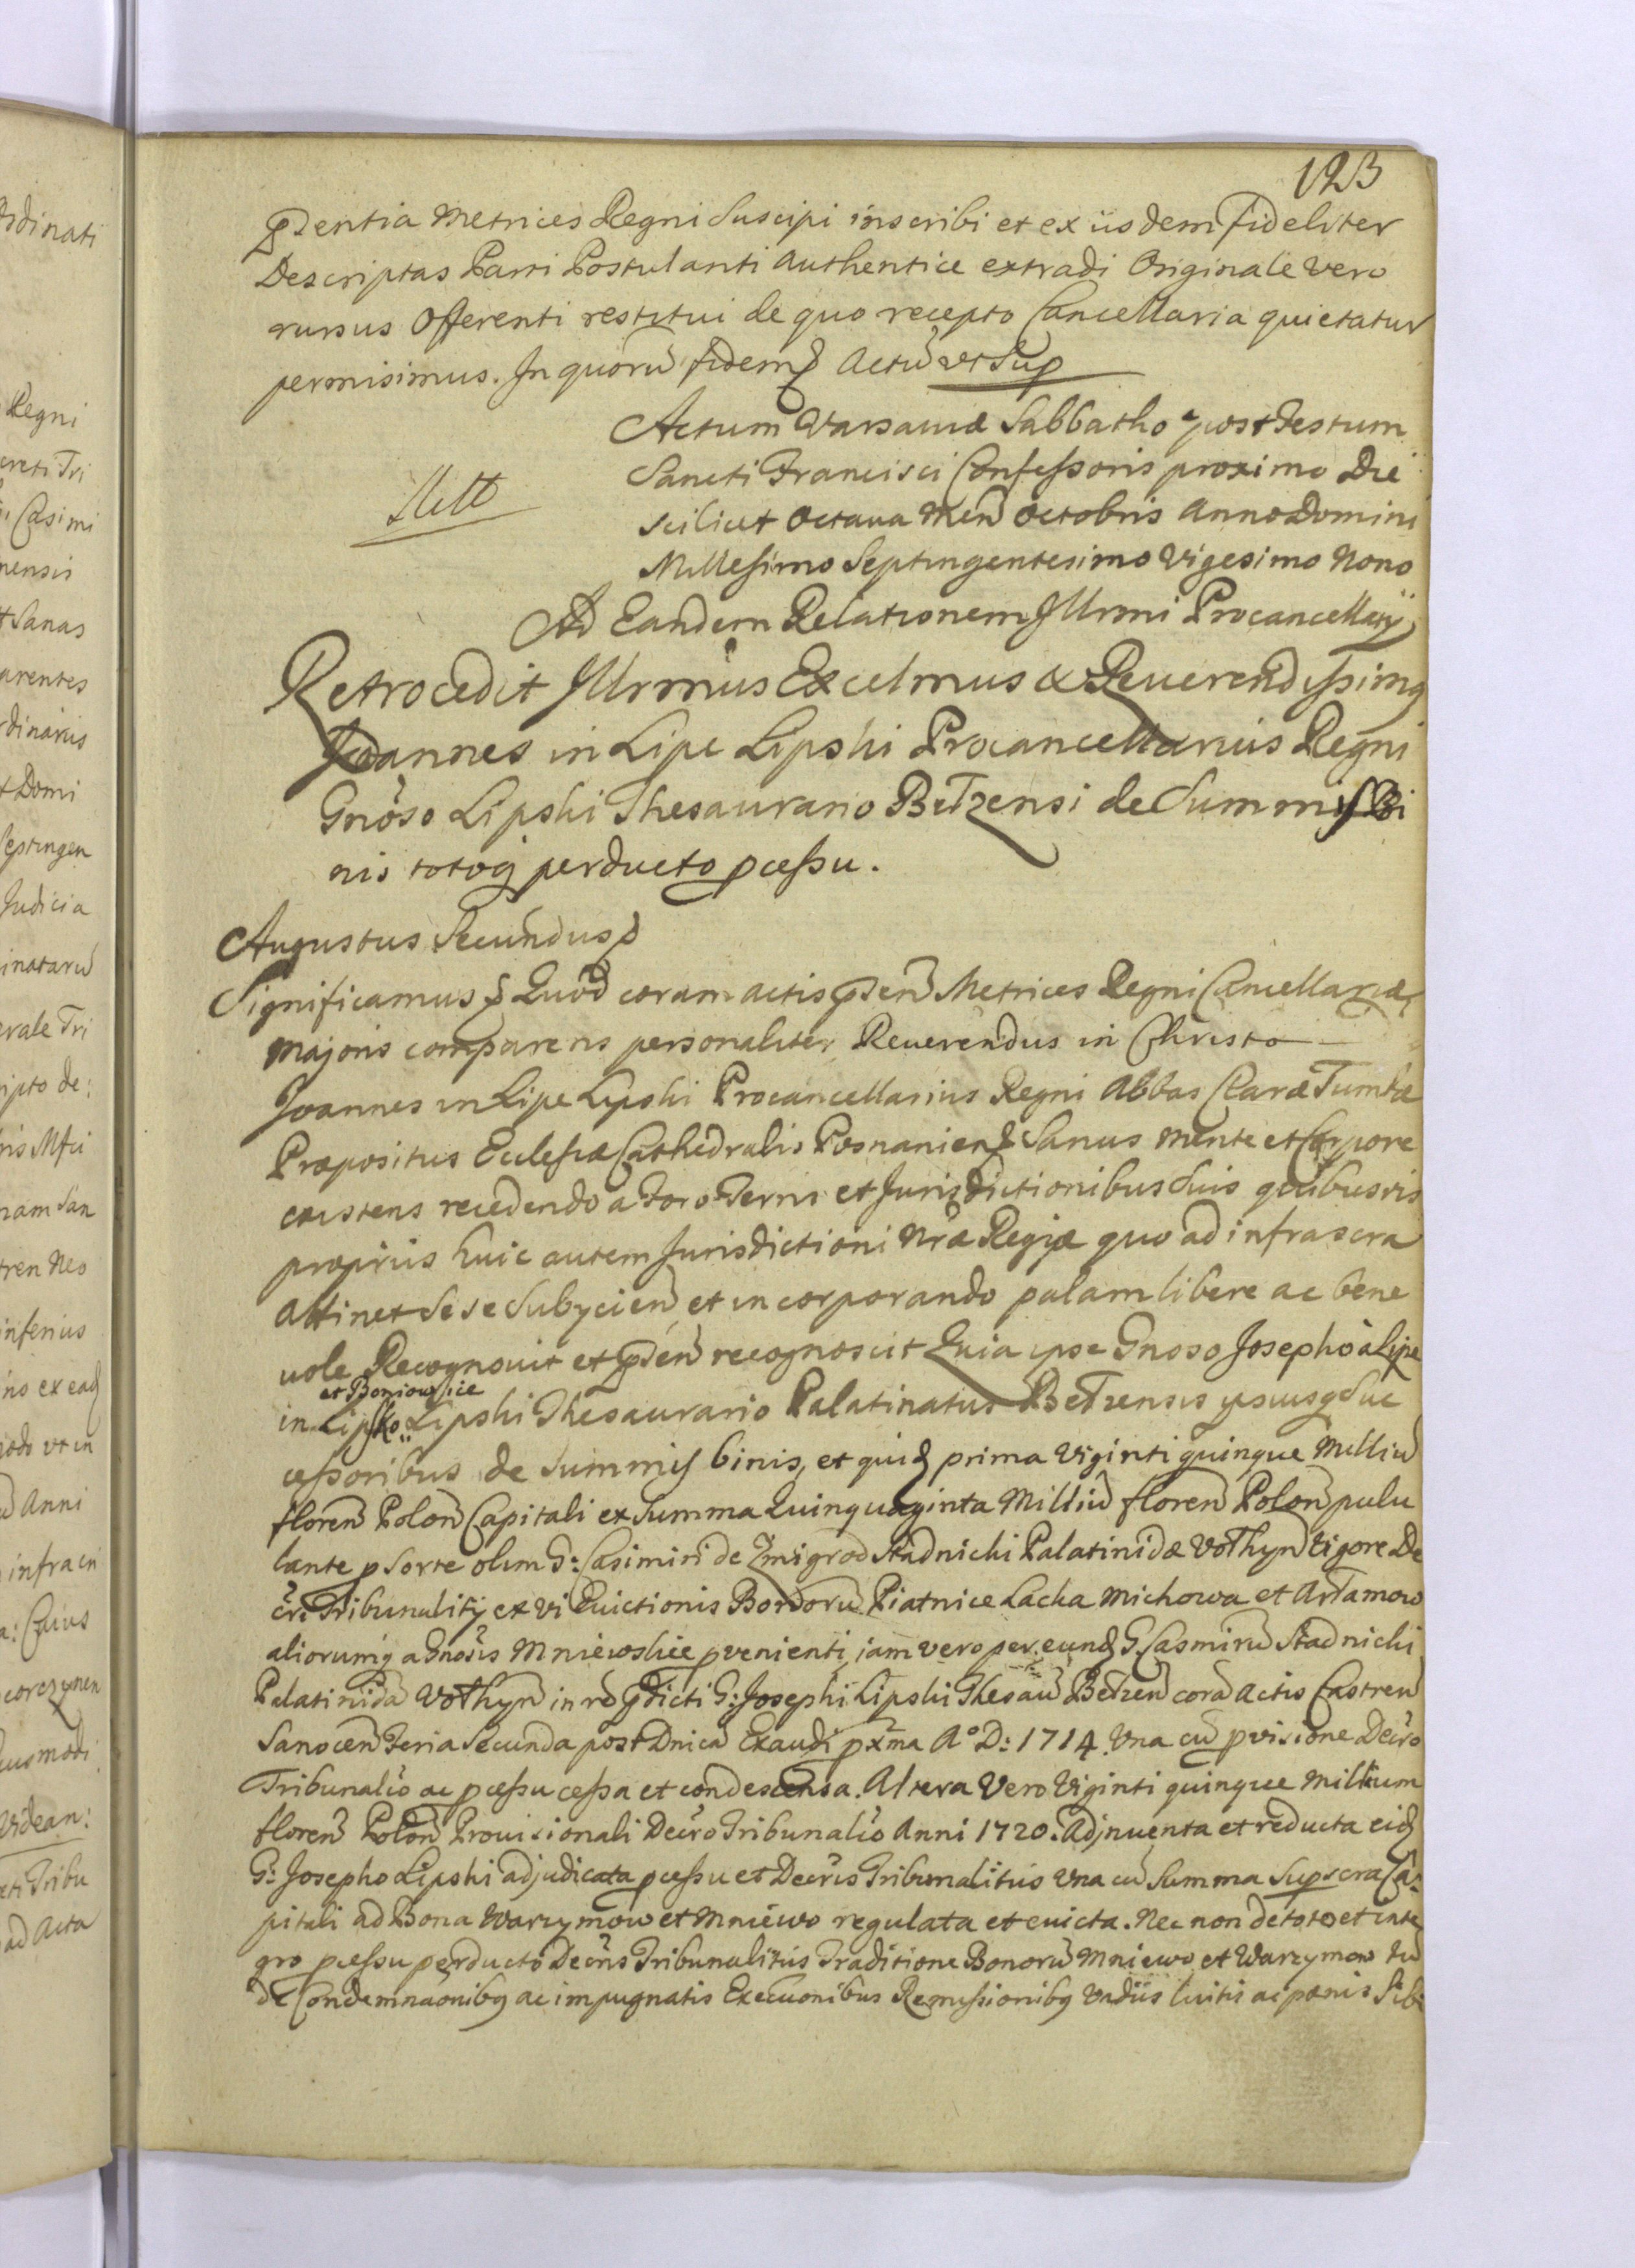 123
pdentia Metrices Regni Suscipi inscribi et ex iisdem fideliter
Descriptas Parti Postulanti Authentice extradi Originale vero
rursus Offerenti restitui de quo recepto Cancellaria quietatur
permisimus. In quorũ fidem Actũ ut Sup
Actum Varsaviæ Sabbatho post Festum
Sancti Francisci Confessoris proximo Die
scilicet Octava Men̄ Octobris Anno Domini
Millesimo Septingentesimo Vigesimo Nono
Ad Eandem Relationem Illrmi Procancellarij
Retrocedit Illrmus Excelmus & Reverendissimq
Joannes in Lipe Lipski Procancellarius Regni
Gnõso Lipski Thesaurario Bełzensi de Summis Bi
nis totoq perducto pcessu.
Augustus Secundus
Significamus Quod coram actis pden̄ Metrices Regni Cancellariæ
Majoris comparens personaliter Reverendus in Christo
Joannes in Lipe Lipski Procancellarius Regni Abbas Claræ Tumbæ
Præpositus Ecclesiæ Cathedralis Posnanien Sanus mente et Corpore
existens recedendo a Foro Terris et Jurisdictionibus suis quibusvis
propriis huic autem Jurisdictioni Nræ Regiæ quo ad infrascra
attinet Se se Subijcien̄ et incorporando palam libere ac bene
vole Recognovit et pden̄ recognoscit Quia ipse Gnoso Josepho à Lipe
et Boniowice
in Lipsko Lipski Thesaurario Palatinatus Bełzensis ejsusq Suc
cessoribus de Summis binis, et quid prima Viginti quinque Milliũ
floren̄ Polon̄ Capitali ex Summa Quinquaginta Milliũ floren̄ Polon̄ pulu
lante p Sorte olim G: Casimiri de Zmigrod Stadnicki Palatinidæ Vołhyn̄ Vigore De
cre Tribunality ex vi Evictionis Bonorũ Piatnice Lacka Michowa et Artamow
aliorumq a Gnosis Mniewskie pvenienti, iam vero per eund G. Casmirũ Stadnicki
Palatinida Vołhyn̄ in rẽ pdicti G: Josephi Lipski Thesau Bełzen̄ corã actis Castren̄
Sanocen̄ Feria Secunda post Dnicã Exaudi pxma A° D: 1714 Una cũ pvisione Decro
Tribunalõ ac pcessu cessa et condescensa. Altera Vero Viginti quinque Millium
floren̄ Polon̄ Provisionali Decro Tribunalõ Anni 1720. Adjnventa et reducta eid
G: Josepho Lipski adjudicata pcessu et Decris Tribunalitiis Una cũ Summa Supscra Ca:
pitali ad Bona Warzymow et Mniewo regulata et evicta. Nec non de toto et inte
gro pcessu perducto Decris Tribunalitiis Traditione Bonorũ Mniewo et Warzymow tũ
de Condemnaonibq ac impugnatis Execuonibus Remissionibq Vadiis luitis ac pœnis Sibi